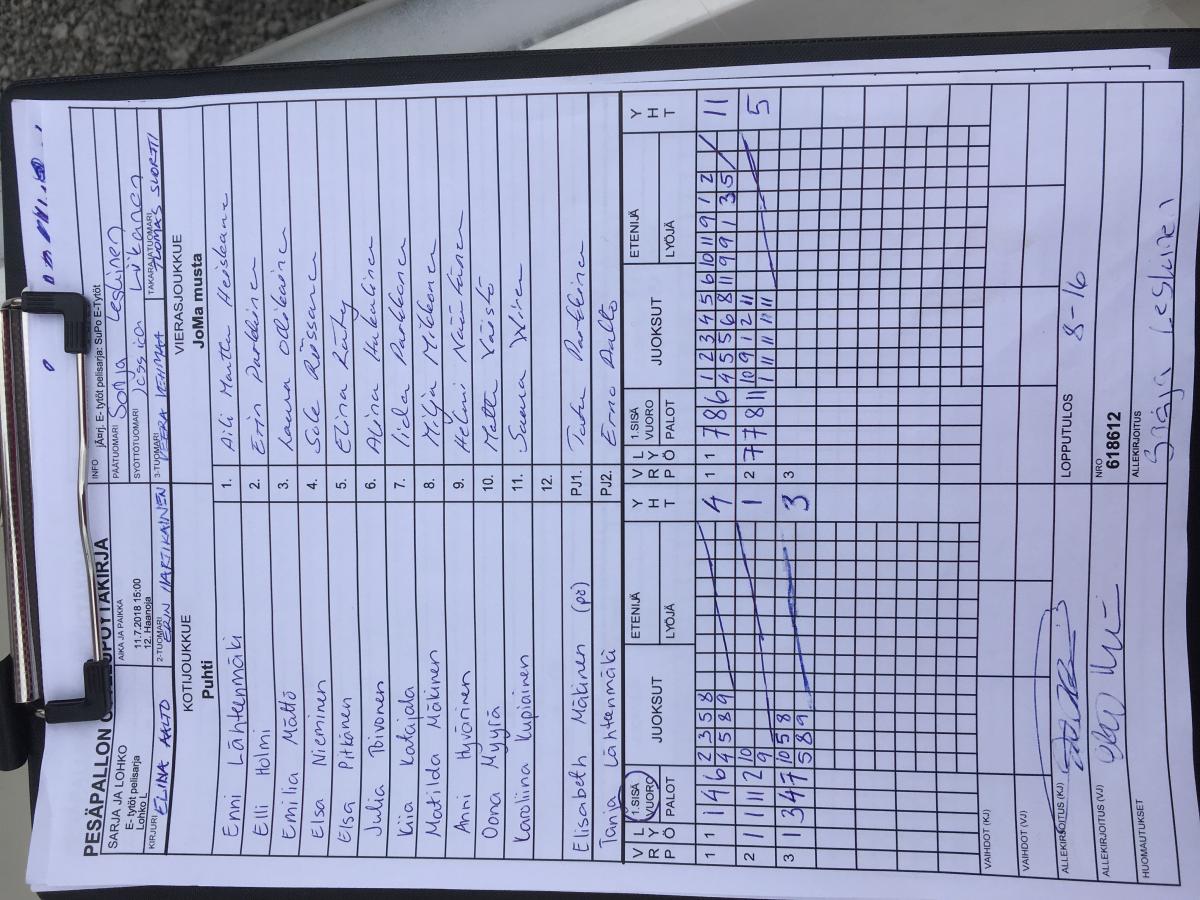 PESÄPALLON OTTELUPÖYTÄKIRJA
SARJA JA LOHKO
E- tytöt pelisarja
Lohko L
AIKA JA PAIKKA
11.7.2018 15:00
12. Haanoja
INFO
E- tytöt pelisarja: SuPo E-Tytöt
PÄÄTUOMARI Sonja Leskinen
SYÖTTÖTUOMARI Jessica Liikanen
KIRJURI ELINA AALTO
2-TUOMARI ERIN MARTIKAINEN
3-TUOMARI VEERA VEHMAA
TAKARAJATUOMARI TUOMAS SUORTTI
KOTIJOUKKUE
Puhti
VIERASJOUKKUE
JoMa musta
Enni Lähteenmäki 1. Aili Martta Heiskanen
Elli Holmi 2. Erin Parkkinen
Emilia Mättö 3. Laura Ollikainen
Elsa Nieminen 4. Sale Reissanen
Elsa Pitkänen 5. Elina Räty
Julia Toivonen 6. Alina Haukalinen
Kiia Katajala 7. Iida Parkkonen
Matilda Mäkinen 8. Milja Mikkonen
Anni Hyvärinen 9. Helmi Näätänen
Oona Myyrä 10. Matta Väistö
Karoliina Kupiainen 11. Saana
12.
Elisabeth Mäkinen (po) PJ1. Taru Parkkinen
Tanja Lähteenmäki PJ2. Erno Aalto
V R L Y Ö P 1.SISÄ VUORO PALOT JUOKSUT ETENIJÄ LYÖJÄ Y H T V R L Y Ö P 1.SISÄ VUORO PALOT JUOKSUT ETENIJÄ LYÖJÄ Y H T
1 1 4 6 2 3 5 8 4 1 1 7 8 6 1 2 3 4 5 6 10 11 9 1 2 11
4 5 8 9 4 5 5 6 8 11 9 9 1 3 5
2 1 11 2 10 1 2 7 7 8 11 10 9 1 2 11 5
9 1 11 11 11 11
3 1 3 4 7 10 5 8 3 3
5 8 9
VAIHDOT (KJ)
VAIHDOT (VJ)
ALLEKIRJOITUS (KJ)
LOPPUTULOS 8-16
ALLEKIRJOITUS (VJ)
NRO
618612
HUOMAUTUKSET
ALLEKIRJOITUS
Leskinen